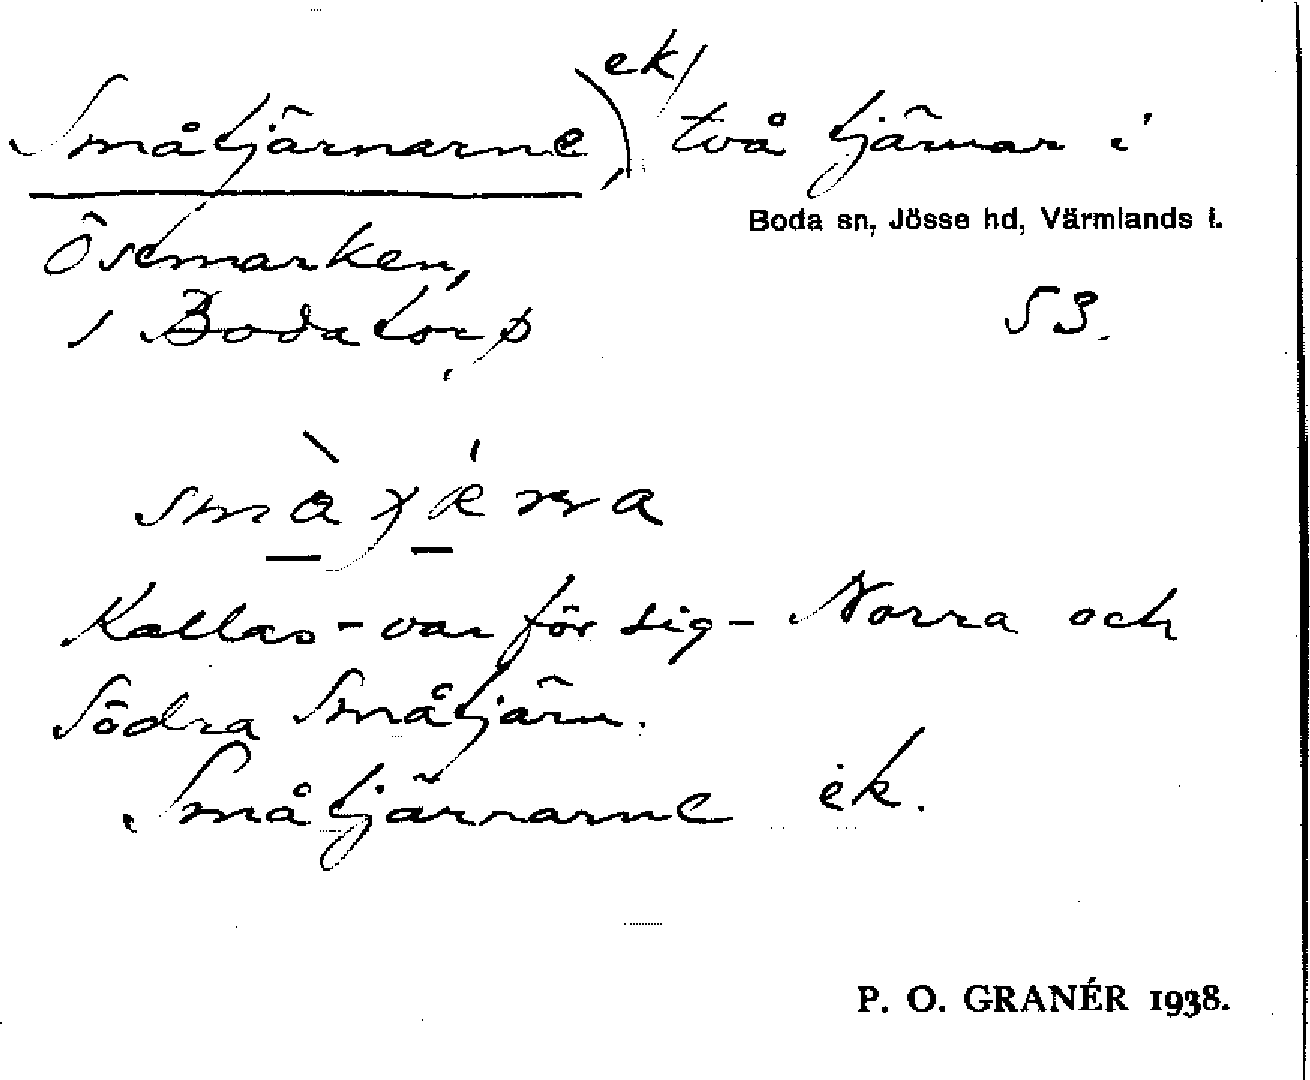 Småtjärnarne, ek/ två tjärnar i
Boda sn, Jösse hd, Värmlands l.
Östmarken,
i Bodatorp
53.
Kallas - var för sig - Norra och
Södra Småtjärn.
Småtjärnarne ek.
P. O. GRANÉR 1938.